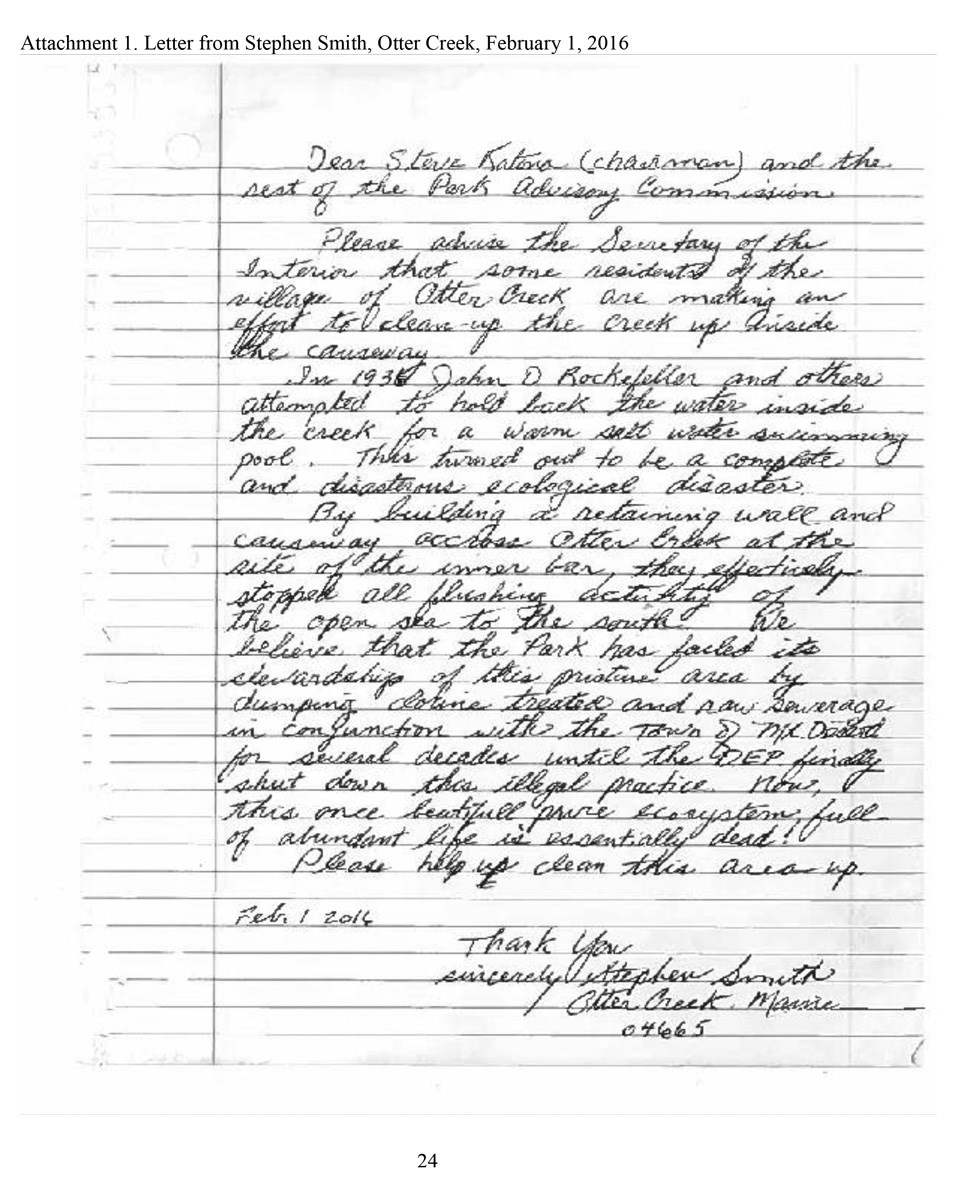 Attachment 1. Letter from Stephen Smith, Otter Creek, February 1, 2016
Dear Steve Katona (chairman) and the
rest of the Park Advisory Commission
Please advise the Secretary of the
Interior that some residents of the
village of Otter Creek are making an
effort to clean-up the creek up inside
the causeway.
In John D Rockefeller and others
attempted to hold back the water inside
the creek for a warm salt water swimming
pool. This turned out to be a complete
and disasterous ecological disaster.
By building a retaining wall and
causeway accross Otter Creek at the
site of the inner bar, they effectively
stopped all flushing activity of
the open sea to the south. We
believe that the Park has failed its
stewardship of this pristine area by
dumping clorine treated and raw sewerage
in conjunction with the Town of Mt. Desert
for several decades until the DEP finally
shut down this illegal practice. Now,
this once beatifull pure ecosystem, full
of abundant life is essentially dead!
Please help us clean this area up.
Feb. 1 2016
Thank You
sincerely Stephen Smith
Otter Creek. Maine
04665
24